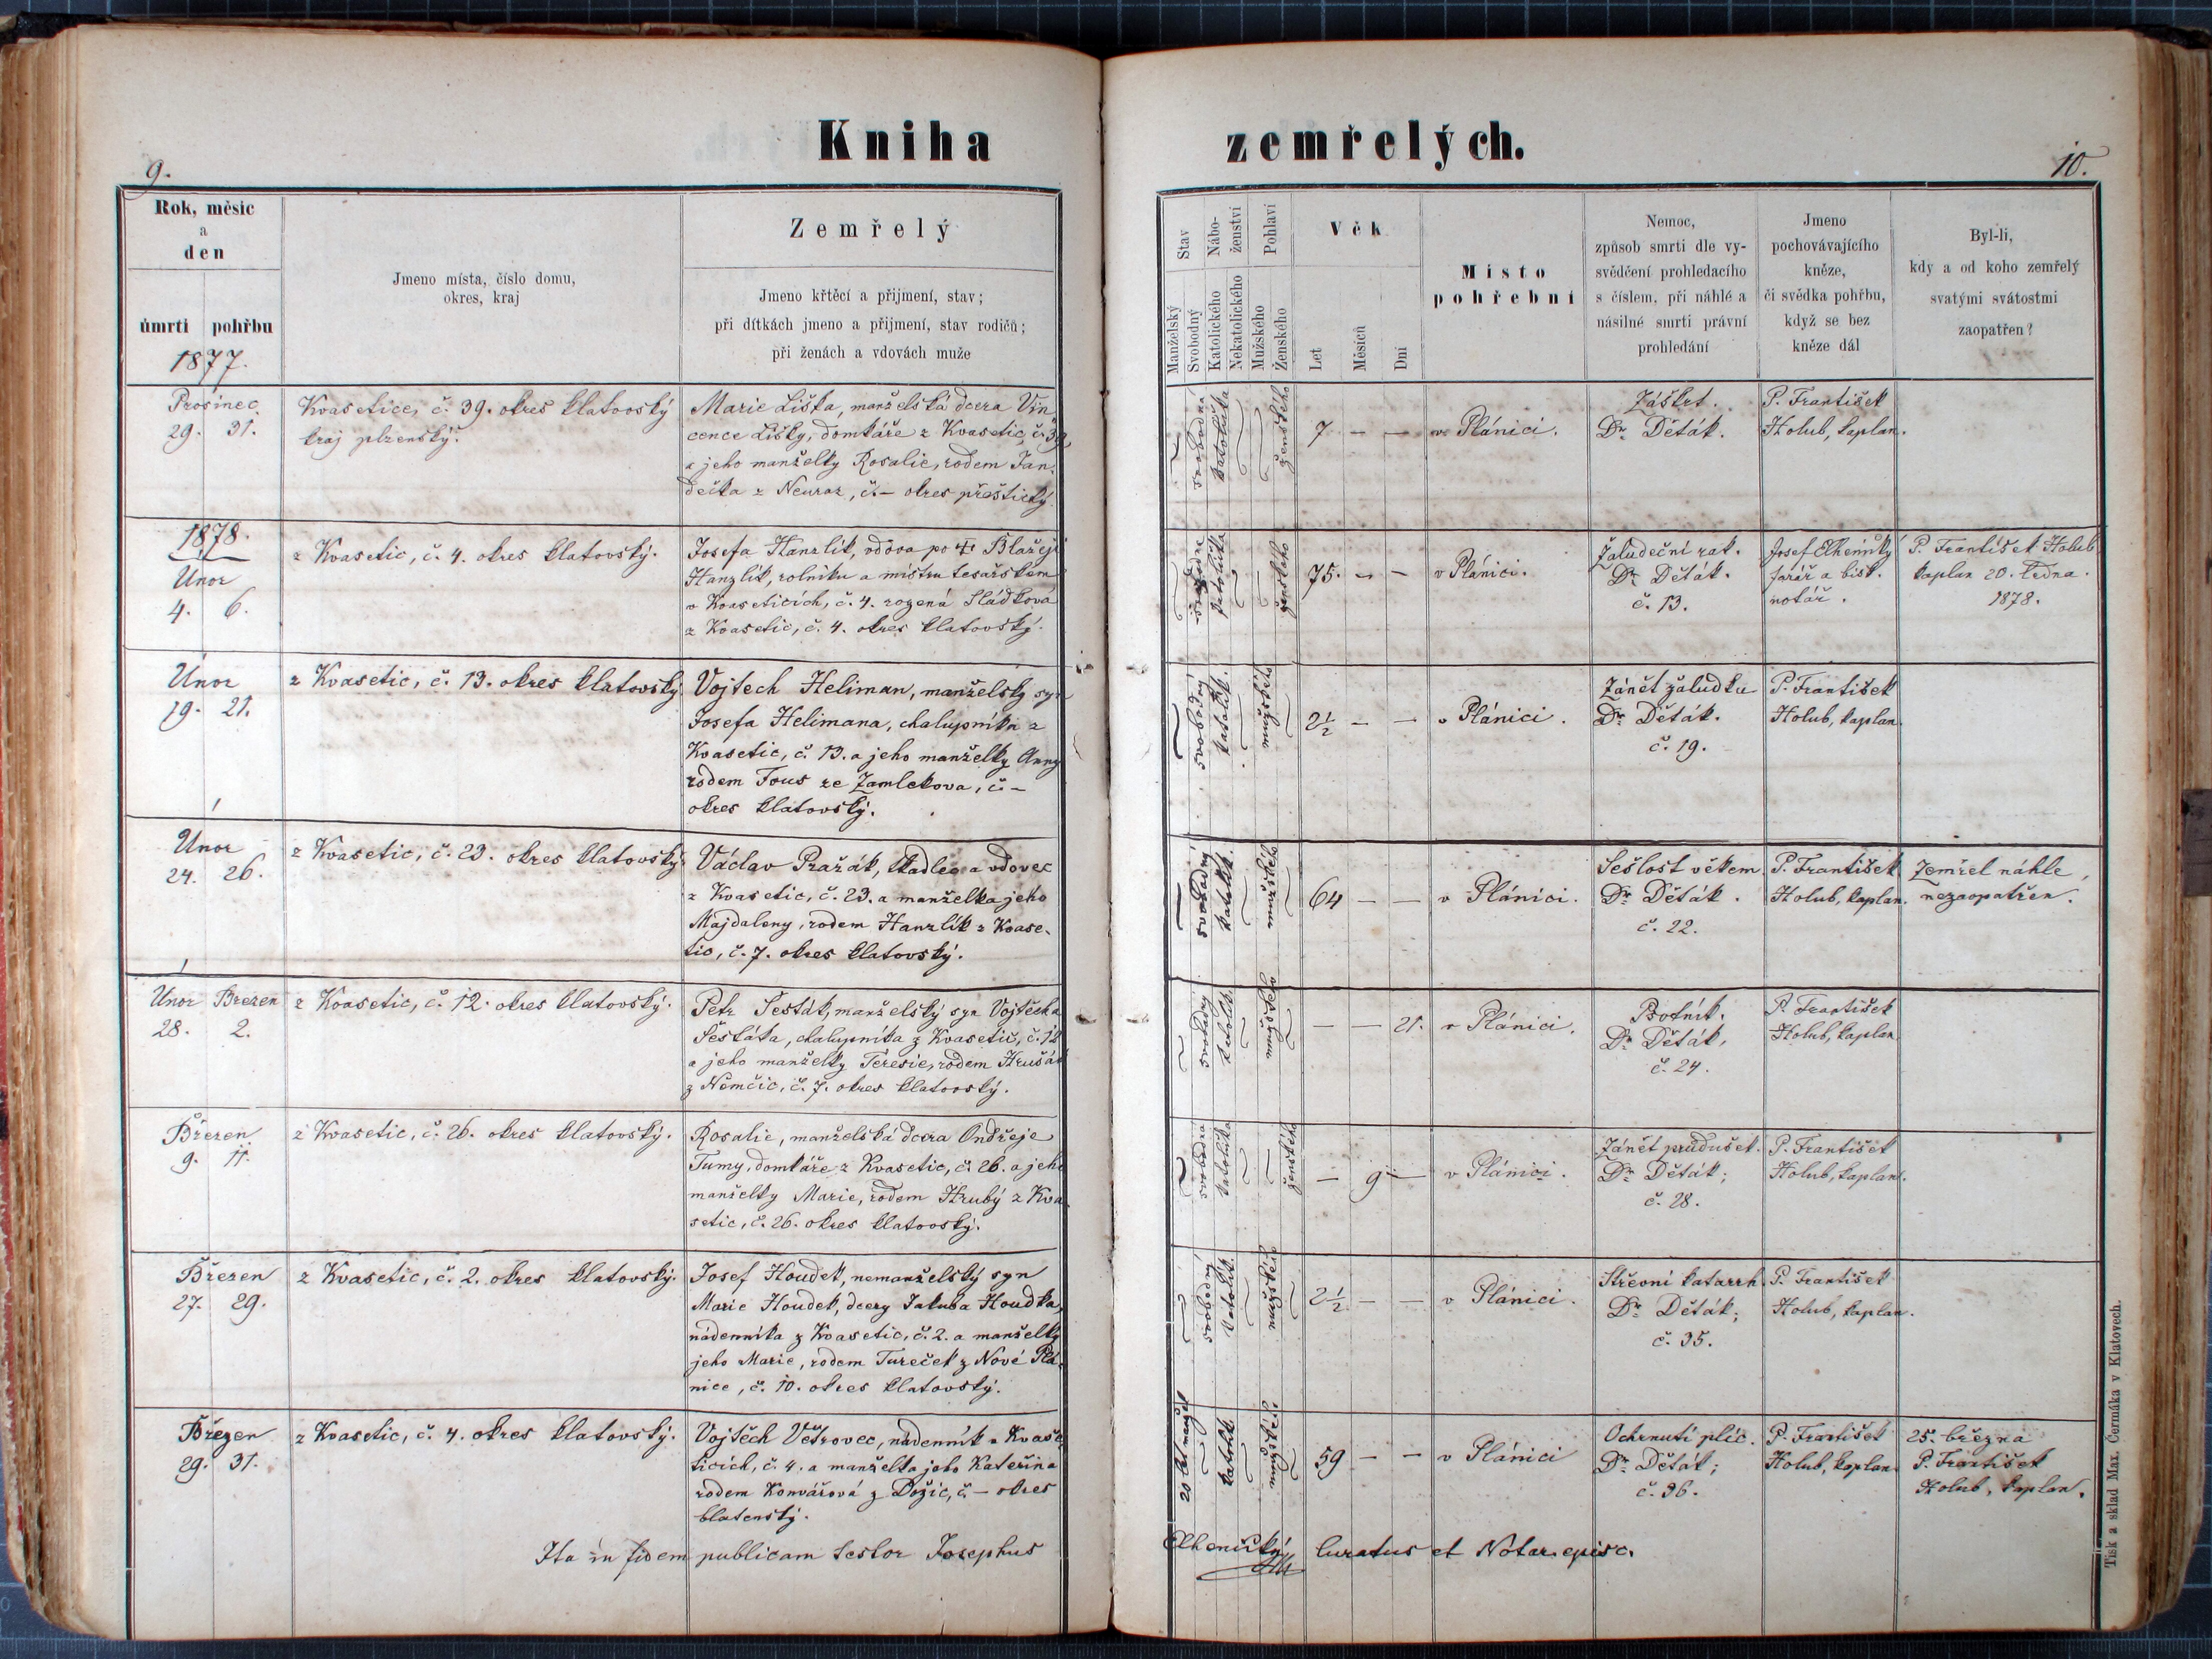 Kniha zemřelých.
9.
10.
Rok, měsíc
a
den
úmrtí pohřbu
1877.
Jmeno místa, číslo domu,
okres, kraj
Zemřelý
Jmeno křtěcí a přijmení, stav;
při dítkách jmeno a přijmení, stav rodičů;
při ženách a vdovách muže
Stav
Manželský
Svobodný
Nábo-
ženství
Katolického
Nekatolického
Pohlaví
Mužského
Ženského
Věk
Let
Měsíců
Dní
Místo
pohřební
Nemoc,
způsob smrti dle vy-
svědčení prohledacího
s číslem, při náhlé a
násilné smrti právní
prohledání
Jmeno
pochovávajícího
kněze,
či svědka pohřbu,
když se bez
kněze dál
Byl-li,
kdy a od koho zemřelý
svatými svátostmi
zaopatřen?
Prosinec
29. 31.
Kvasetice, č. 39. okres klatovský
kraj plzenský.
Marie Liška, manželská dcera Vin
cence Lišky, domkáře z Kvasetic, č. 39
a jeho manželky Rosalie, rodem Jan-
dečka z Neuraz, č. – okres přeštický.
svobodná
katolička
ženského
7 — —
v Plánici.
Záškrt.
Dr. Děták.
P. František
Holub, kaplan.
1878.
Únor
4. 6.
z Kvasetic, č. 4. okres klatovský.
Josefa Hanzlík, vdova po † Blažeji
Hanzlík, rolníku a mistru tesařském
v Kvaseticích, č. 4. rozená Sládková
z Kvasetic, č. 4. okres klatovský.
katolička
ženského
75. — —
v Plánici.
Žaludeční rak.
Dr. Děták.
č. 13.
Josef Elhenický
farář a bisk.
notář.
P. František Holub
kaplan 20. ledna.
1878.
Únor
19. 21.
z Kvasetic, č. 13. okres klatovský
Vojtech Heliman, manželsky syn
Josefa Helimana, chalupníka z
Kvasetic, č. 13. a jeho manželky Anny
rodem Tous ze Zamlekova, č. –
okres klatovský.
svobodný
katolík.
mužského
2½ — —
v Plánici.
Zánět žaludku
Dr. Děták.
č. 19.
P. František
Holub, kaplan.
Únor
24. 26.
z Kvasetic, č. 23. okres klatovský
Václav Pražák, tkadlec a vdovec
z Kvasetic, č. 23. a manželka jeho
Majdaleny, rodem Hanzlík z Kvase-
tic, č. 7. okres klatovský.
svobodný
katolík.
mužského
64 — —
v Plánici.
Sešlost věkem
Dr. Děták.
č. 22.
P. František
Holub, kaplan.
Zemřel náhle,
nezaopatřen.
Únor Brezen
28. 2.
z Kvasetic, č. 12. okres klatovský.
Petr Šesták, manželský syn Vojtěcha
Šestáka, chalupníka z Kvasetic, č. 12
a jeho manželky Teresie, rodem Hrušák
z Němčic, č. 7. okres klatovský.
svobodný
katolík
mužského
— — 21.
v Plánici.
Psotník.
Dr. Děták,
č. 24.
P. František
Holub, kaplan.
Březen
9. 11.
z Kvasetic, č. 26. okres klatovský.
Rosalie, manželská dcera Ondřeje
Tumy, domkáře z Kvasetic, č. 26. a jeho
manželky Marie, rodem Hrubý z Kva
setic, č. 26. okres klatovský.
svobodná
katolička
ženského
— 9 —
v Plánici.
Zánět průdušek.
Dr. Děták;
č. 28.
P. František
Holub, kaplan.
Březen
27. 29.
z Kvasetic, č. 2. okres klatovský.
Josef Houdek, nemanželský syn
Marie Houdek, dcery Jakuba Houdka,
nádenníka z Kvasetic, č. 2. a manželky
jeho Marie, rodem Tureček z Nové Plá-
nice, č. 10. okres klatovský.
svobodný
katolík
mužského
2½ — —
v Plánici.
Střevní katarrh
Dr. Děták;
č. 35.
P. František
Holub, kaplan.
Březen
29. 31.
z Kvasetic, č. 4. okres klatovský.
Vojtěch Větrovec, nádenník v Kvase
ticích, č. 4. a manželka jeho Kateřina
rodem Konvářová z Dožic, č. – okres
blatenský.
katolík
mužského
59 — —
v Plánici
Ochrnutí plic.
Dr. Děták;
č. 36.
P. František
Holub, kaplan.
25. března
P. František
Holub, kaplan.
Ita in fidem publicam testor Josephus Elhenický Curatus et Notar. episc.
Tisk a sklad Max. Čermáka v Klatovech.